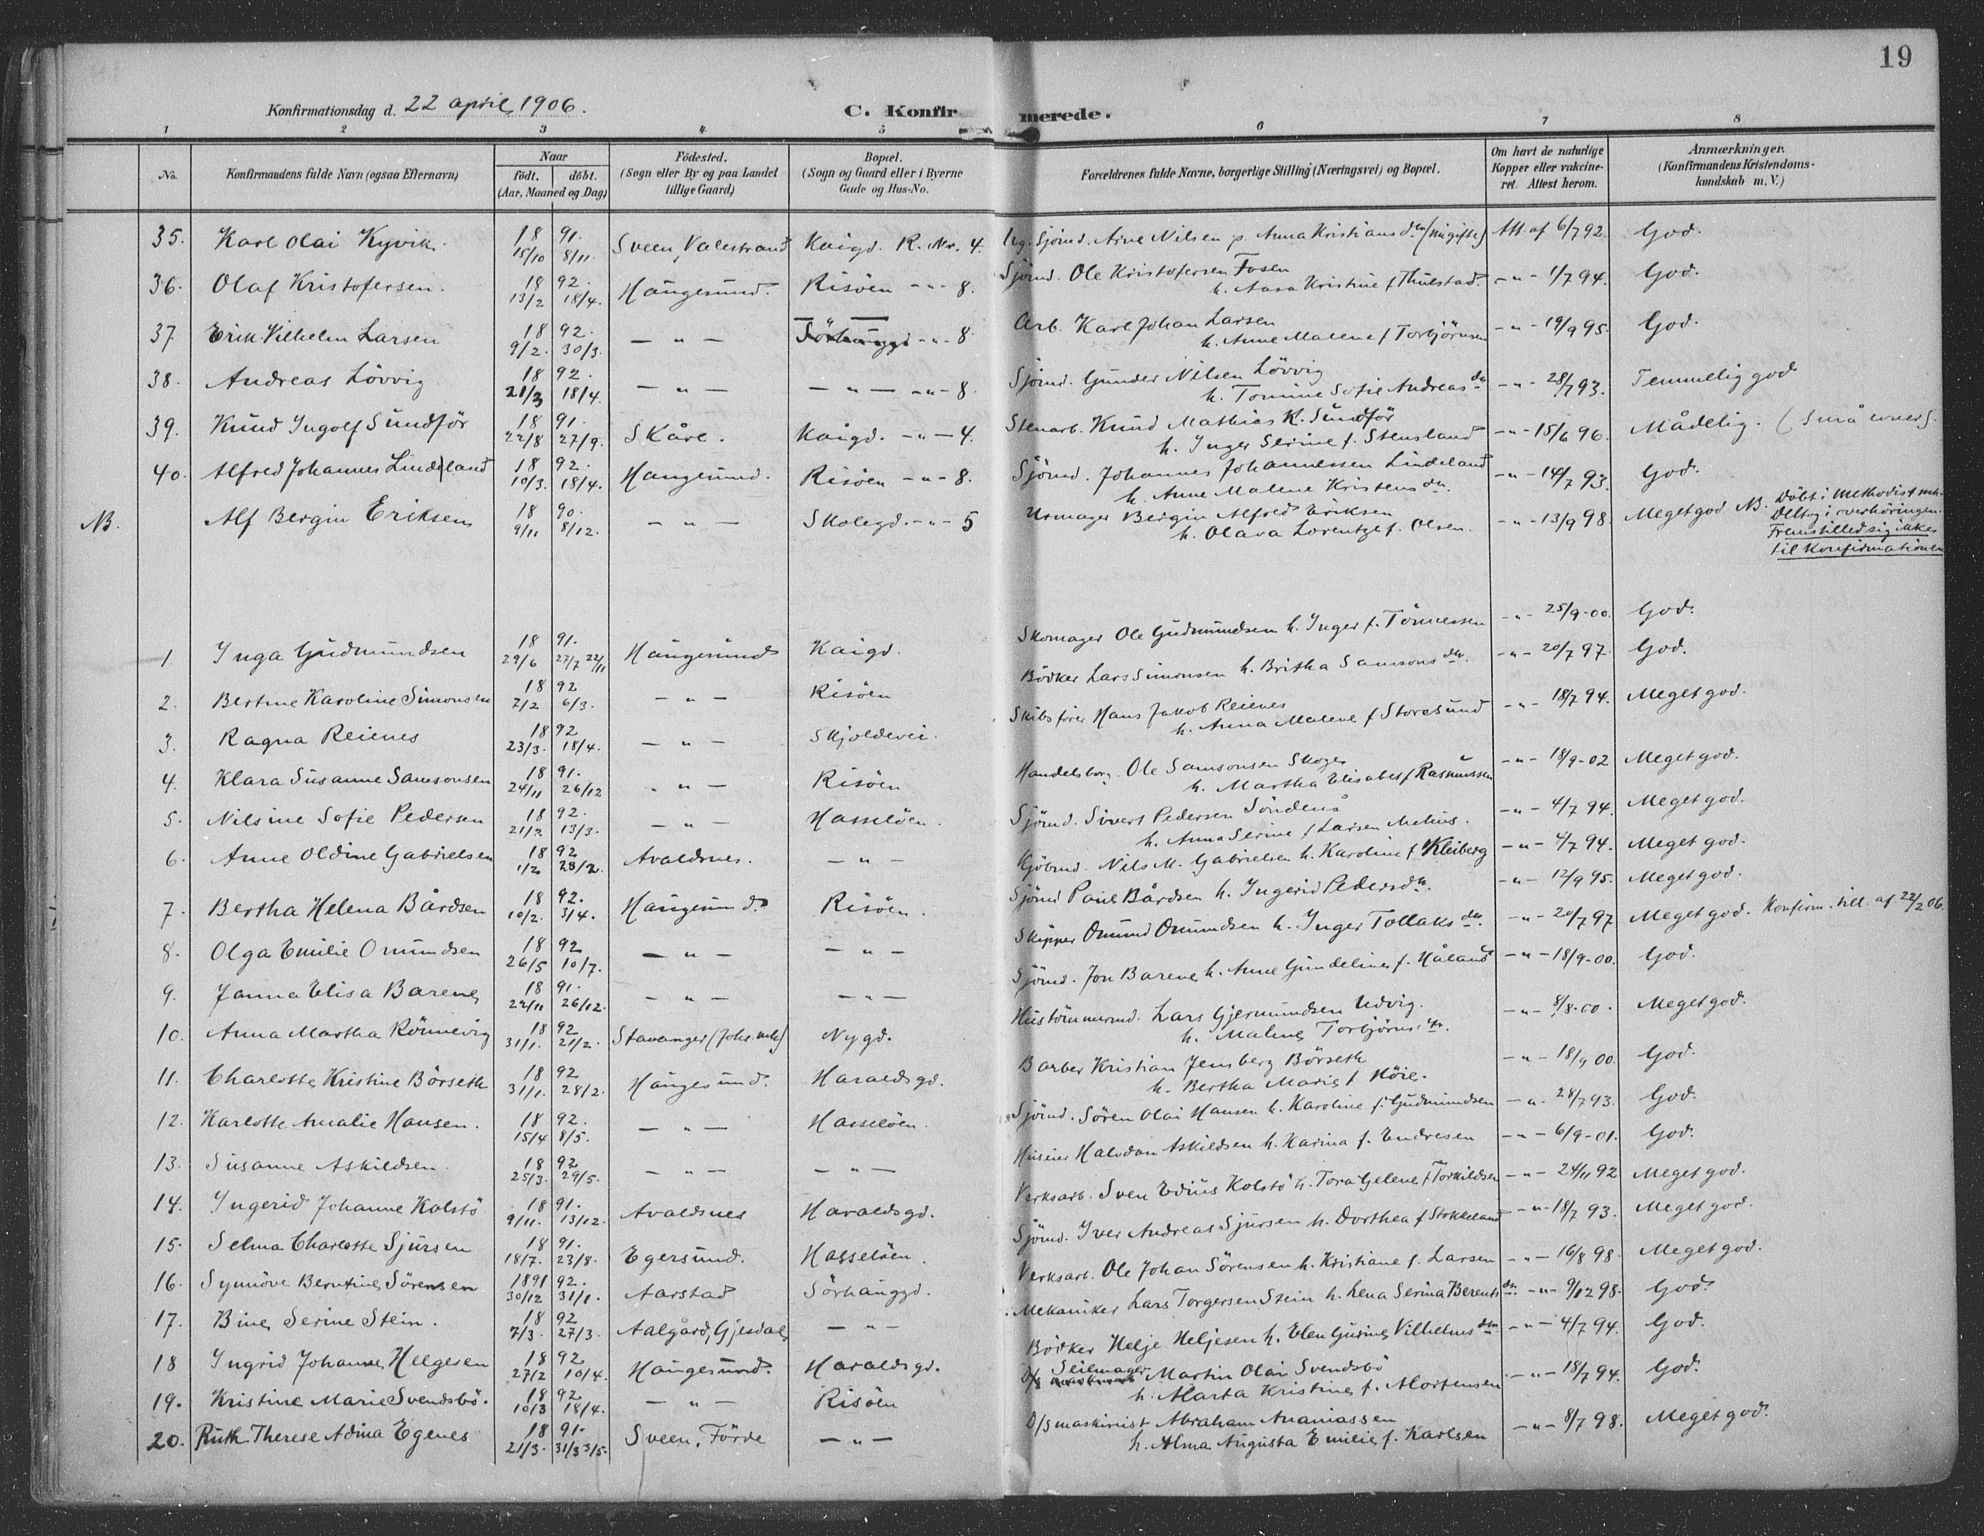 19
Konfirmationsdag d. 22 april 1906.
C. Konfirmerede.
1 2 3 4 5 6 7 8
No. Konfirmandens fulde Navn (ogsaa Efternavn) Naar født. døbt. (Aar, Maaned og Dag) Fødested. (Sogn eller By og paa Landet tillige Gaard) Bopæl. (Sogn og Gaard eller i Byerne Gade og Hus-No.) Forældrenes fulde Navne, borgerlige Stilling (Næringsvei) og Bopæl. Om havt de naturlige Kopper eller vakcineret. Attest herom. Anmærkninger. (Konfirmandens Kristendomskundskab m. V.)
35. Karl Olai Kyvik. 18 91. 15/10 8/11. Sveen, Valestrand Kaigd. R. Nr. 4. Ug. Sjömd. Arne Nilsen p. Anna Kristiansdtr (nu gifte) Att. af 6/7 92. God.
36. Olaf Kristofersen. 18 92. 13/2 18/4. Haugesund. Risöen -"- 8. Sjömd. Ole Kristofersen Fosen h. Aasa Kristine f Thuestad. -"- 1/7 94. God.
37. Erik Vilhelm Larsen 18 92. 9/2. 30/3. -"- Sörhauggd -"- 8. Arb. Karl Johan Larsen h. Anne Malene f Torbjörnsen -"- 19/9 95. God.
38. Andreas Lövvig 18 92. 21/3 18/4. -"- -"- -"- 8. Sjömd. Gunder Nilsen Lövvig h. Tomine Sofie Andreasdtr -"- 28/7 93. Temmelig god
39. Knud Ingolf Sundför 18 91. 22/8 27/9. Skåre. Kaigd. -"- 4. Stenarb. Knud Mathias K. Sundför h. Inger Serine f. Stensland -"- 15/6 96. Mådelig. (små evner).
40. Alfred Johannes Lindeland 18 92. 10/3. 18/4. Haugesund. Risöen -"- 8. Sjömd. Johannes Johannessen Lindeland h. Anne Malene Kristensdtr. -"- 14/7 93. God.
NB. Alf Bergin Eriksen 18 90. 9/11 8/12. -"- Skolegd. -"- 5 Urmager Bergin Alfred Eriksen h. Olava Lorentze f. Olsen. -"- 13/9 98. Meget god NB. Döbt i methodistmh. Deltog i overhöringen. Fremstilled sig ikke til Konfirmationen
1. Inga Gudmundsen 18 91. 29/6 27/7 22/11 Haugesund Kaigd. Skomager Ole Gudmundsen h. Inger f. Tönnessen -"- 25/9-00. God.
2. Bertine Karoline Simonsen 18 92 7/2 6/3. -"- Risöen Bödker Lars Simonsen h. Britha Samsonsdtr. -"- 20/7 97. God.
3. Ragna Reienes 18 92 23/3. 18/4. -"- Skjoldevei. Skibsförer Hans Jakob Reienes h. Anna Malene f Storesund -"- 18/7 94. Meget god.
4. Klara Susanne Samsonsen 18 91. 24/11 26/12 -"- Risöen Handelsborg. Ole Samsonsen Skoge h. Martha Elisabet f Rasmussen -"- 18/9-02 Meget god.
5. Nilsine Sofie Pedersen 18 92. 21/2 13/3. -"- Hasselöen. Sjömd. Sivert Pedersen Söndenå h. Anna Serine f Larsen Mehus. -"- 4/7 94. Meget god.
6. Anne Oldine Gabrielsen 18 92 1/2 28/2. Avaldsnes. -"- Kjöbmd. Nils M. Gabrielsen h. Karoline f Kleiberg -"- 4/7 94. Meget god.
7. Bertha Helena Bårdsen 18 92. 10/2. 3/4. Haugesund. Risöen. Sjömd Paul Bårdsen h. Ingerid Pedersdtr. -"- 12/9 95. Meget god.
8. Olga Emilie Omundsen 18 92 26/5 10/7. -"- -"- Skipper Omund Omundsen h. Inger Tollaksdtr. -"- 20/7 97 Meget god. Konfirm. till. af 22/2 06.
9. Janna Elisa Barene 18 91. 22/11 26/12. -"- -"- Sjömd. Jon Barene h. Anne Gundeline f. Håland -"- 18/9-00. God.
10. Anna Martha Rönnevig 18 92 31/1. 21/2. Stavanger (Johs. mh.) Nygd. Hustömmermd. Lars Gjermundsen Udvig. h. Malene Torbjörnsdtr. -"- 8/8-00. Meget god.
11. Charlotte Kristine Börseth 18 92 31/1. 28/2. Haugesund. Haraldsgd. Barber Kristian Jensberg Börseth h. Bertha Marie f Höie. -"- 18/9 00. God.
12. Karlotte Amalie Hansen. 18 92. 15/4 8/5. -"- Hasselöen. Sjömd. Sören Olai Hansen h. Karoline f. Gudmundsen -"- 28/7 93. God.
13. Susanne Askildsen. 18 92 25/3. 29/5. -"- -"- Huseier Halvdan Askildsen h. Karina f. Endresen -"- 6/9-01. God.
14. Ingerid Johanne Kolstö 18 91. 9/11. 13/12. Avaldsnes Haraldsgd. Verksarb. Sven Edius Kolstö h. Tora Gelene f Torkildsen -"- 24/11 92 Meget god.
15. Selma Charlotte Sjursen 18 91. 18/7. 23/8. Egersund. Hasselöen. Sjömd. Iver Andreas Sjursen h. Dorthea f Stokkeland -"- 18/7 93. Meget god.
16. Synnöve Berntine Sörensen 1891 92. 30/12 31/1. Aarstad Sörhauggd. Verksarb. Ole Johan Sörensen h. Kristiane f. Larsen -"- 16/8 98. Meget god.
17. Bine Serine Stein. 18 92 7/3. 27/3. Aalgård, Gjesdal, -"- Mekaniker Lars Torgersen Stein h. Lena Serina Berentsdtr. -"- 9/12 98. God.
18 Ingrid Johanne Helgesen 18 92 27/2 10/4. Haugesund. Haraldsgd. Bödker Helje Heljesen h. Elen Gurine Vilhelmsdtr. -"- 4/7 94. God.
19. Kristine Marie Svendsbö. 18 92. 10/3 18/4. -"- Risöen Seilmager Martin Olai Svendsbö h. Marta Kristine f. Mortensen -"- 18/7 94. God.
20. Ruth Therese Adina Egenes 18 91. 21/3. 31/3 3/5. Sveen, Förde -"- D/s maskinist Abraham Ananiassen h. Alma Augusta Emilie f. Karlsen -"- 8/7 98. Meget god.